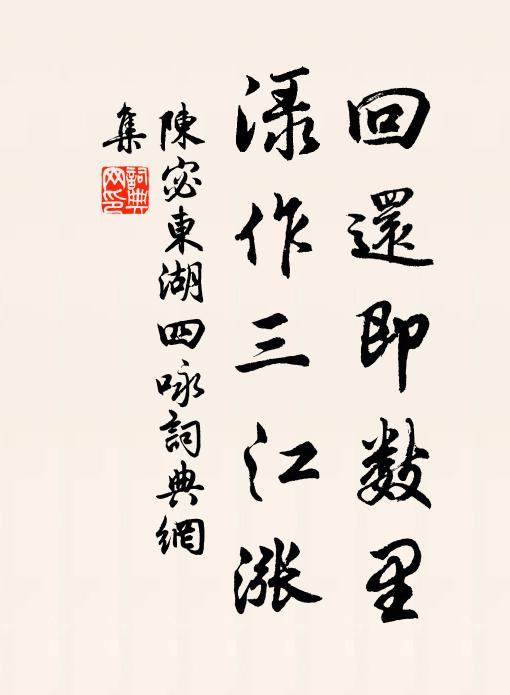 回還即数里
渌作三江漲
陳宓東湖四咏詞典網
集
詞典網印